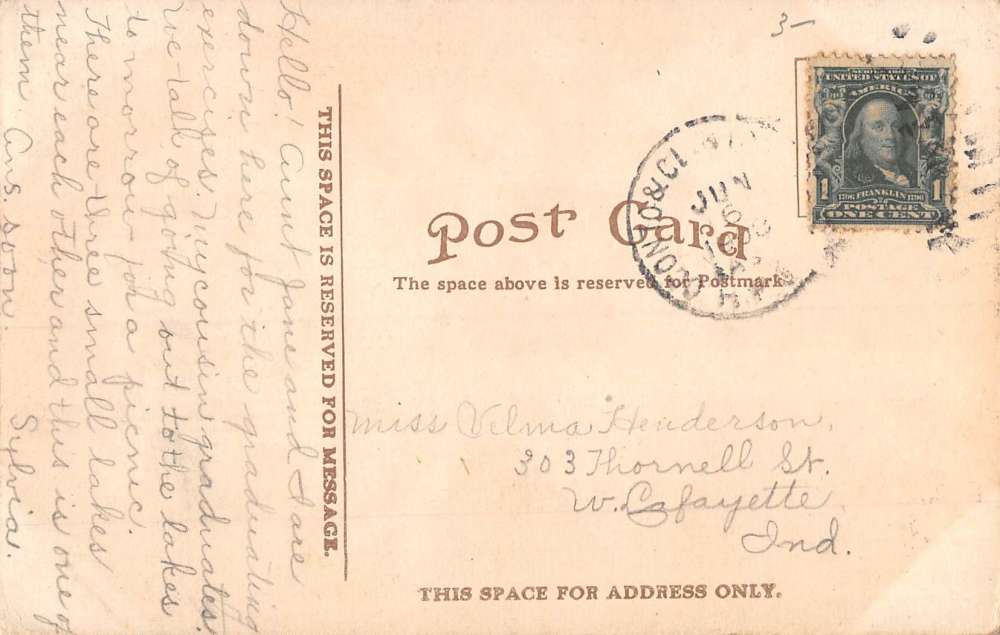 5
SERIES 1902
UNITED STATES OF
AMERICA
1 1
1706 FRANKLIN 1790
POSTAGE
ONE CENT
JUN
Post Card
The space above is reserved for Postmark
THIS SPACE IS RESERVED FOR MESSAGE.
Hello! Aunt Jane and I are
down here for the graduating
exercises. My cousin graduates.
We talk of going out to the lakes
to morrow for a picnic.
There are three small lakes
near each other and this is one of
them. Ans. soon. Sylvia.
Miss Velma Henderson,
303 Thornell St.
W. Lafayette
Ind.
THIS SPACE FOR ADDRESS ONLY.